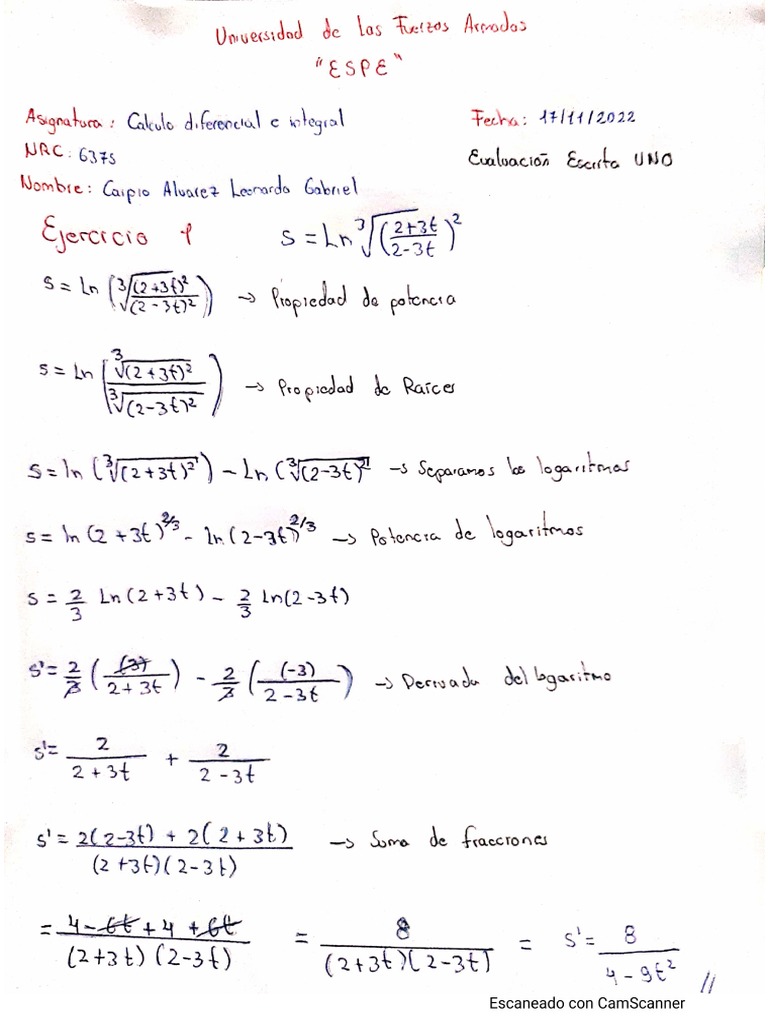 Universidad de las Fuerzas Armadas
"ESPE"
Asignatura: Calculo diferencial e integral
Fecha: 17/11/2022
NRC: 6375
Evaluación Escrita UNO
Nombre: Carpio Alvarez Leonardo Gabriel
Ejercicio 1 S = Ln ∛((2+3t)/(2-3t))²
S = Ln (∛((2+3t)²/(2-3t)²)) → Propiedad de potencia
S = Ln (∛(2+3t)² / ∛(2-3t)²) → Propiedad de Raíces
S = ln (∛(2+3t)²) - Ln (∛(2-3t)²) → Separamos los logaritmos
S = ln (2+3t)^2/3 - ln (2-3t)^2/3 → Potencia de logaritmos
S = 2/3 Ln(2+3t) - 2/3 Ln(2-3t)
S' = 2/3 ((3)/(2+3t)) - 2/3 ((-3)/(2-3t)) → Derivada del logaritmo
S' = 2/(2+3t) + 2/(2-3t)
S' = (2(2-3t) + 2(2+3t))/((2+3t)(2-3t)) → Suma de fracciones
= (4-6t+4+6t)/((2+3t)(2-3t)) = 8/((2+3t)(2-3t)) = S' = 8/(4-9t²) //
Escaneado con CamScanner